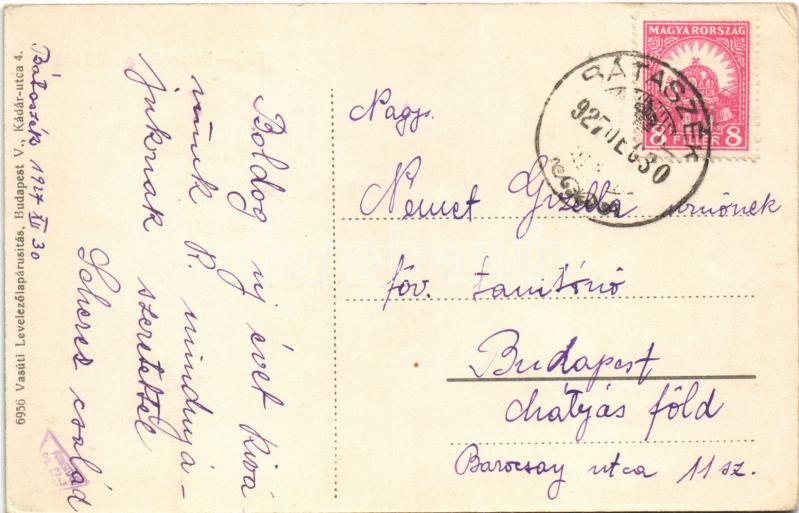 6956 Vasúti Levelezőlapárusítás, Budapest V., Kádár-utca 4.
Bátaszék 1927 XII 30
Boldog új évet kivá-
nunk R. mindnyá-
juknak szeretettel
Scherer család
MAGYARORSZÁG
8 FILLÉR 8
BÁTASZÉK
927 DEC 30
Nagys.
Német Gizella urnőnek
főv. tanitónő
Budapest
Mátyás föld
Barocsay utca 11 sz.